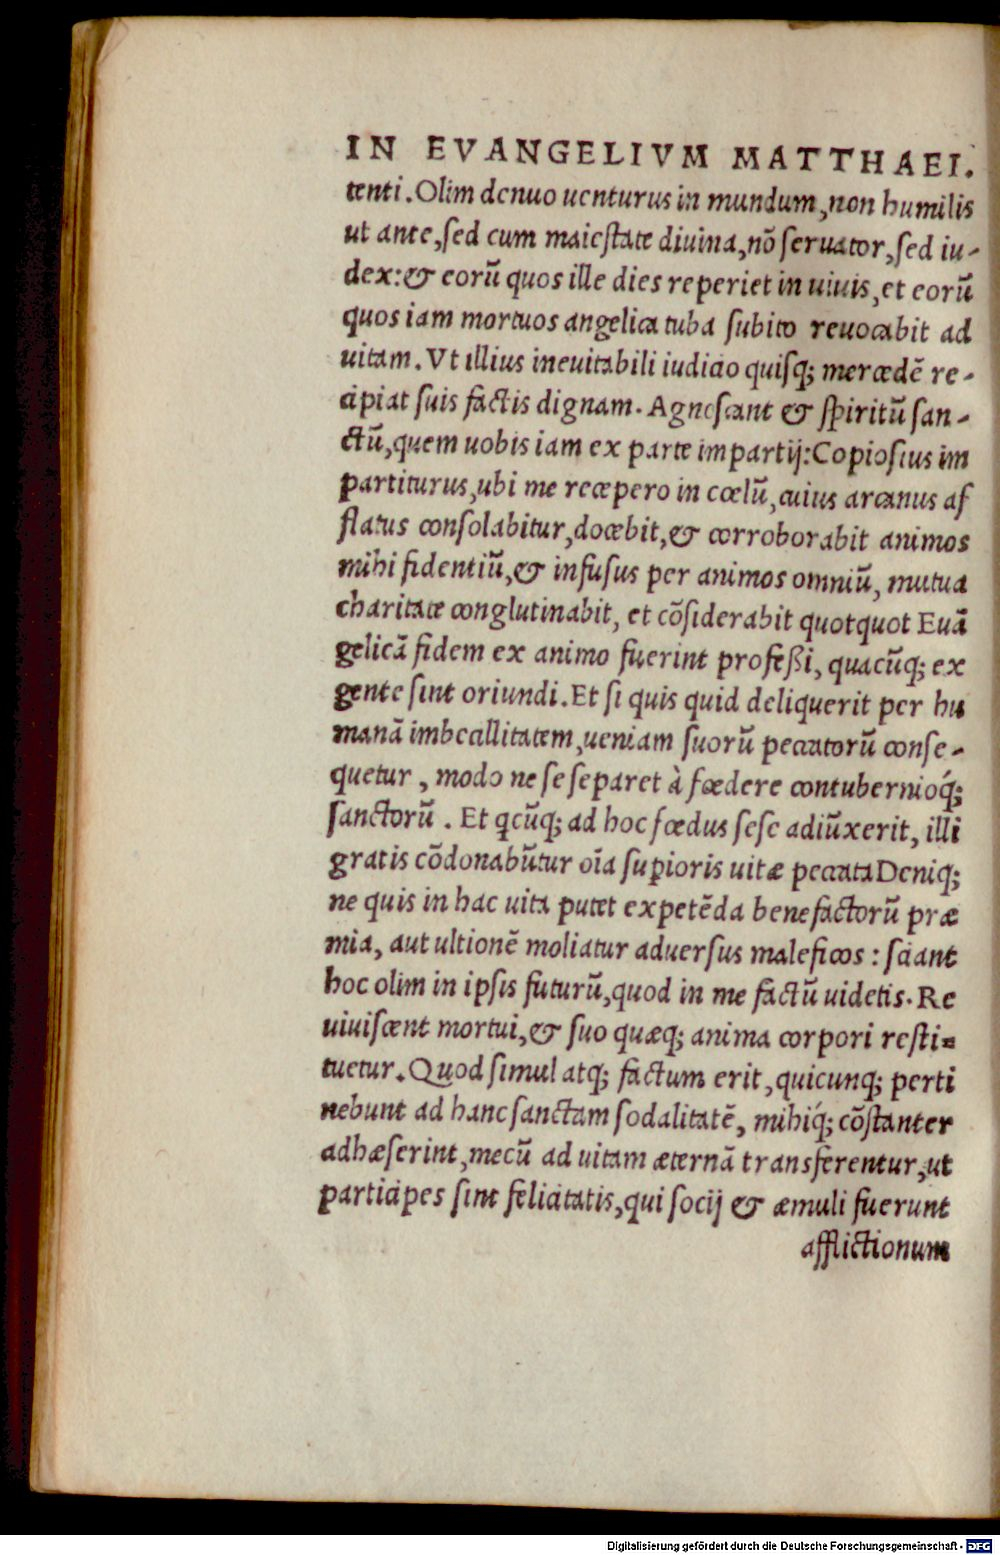 IN EVANGELIVM MATTHAEI.
tenti. Olim denuo uenturus in mundum, non humilis
ut ante, sed cum maiestate diuina, nõ seruator, sed iu-
dex: & eorũ quos ille dies reperiet in uiuis, et eorũ
quos iam mortuos angelica tuba subito reuocabit ad
uitam. Vt illius ineuitabili iudicio quisq; mercedẽ re-
cipiat suis factis dignam. Agnoscant & spiritũ san-
ctũ, quem uobis iam ex parte impartij: Copiosius im
partiturus, ubi me recepero in cœlũ, cuius arcanus af
flatus consolabitur, docebit, & corroborabit animos
mihi fidentiũ, & infusus per animos omniũ, mutua
charitate conglutinabit, et cõsiderabit quotquot Euã
gelicã fidem ex animo fuerint professi, quacũq; ex
gente sint oriundi. Et si quis quid deliquerit per hu
manã imbecillitatem, ueniam suorũ peccatorũ conse-
quetur, modo ne se separet à fœdere contubernioq́;
sanctorũ. Et qcũq; ad hoc fœdus sese adiũxerit, illi
gratis cõdonabũtur oĩa supioris uitæ peccata Deniq;
ne quis in hac uita putet expetẽda benefactorũ præ
mia, aut ultionẽ moliatur aduersus maleficos: sciant
hoc olim in ipsis futurũ, quod in me factũ uidetis. Re
uiuiscent mortui, & suo quæq; anima corpori resti-
tuetur. Quod simul atq; factum erit, quicunq; perti
nebunt ad hanc sanctam sodalitatẽ, mihiq́; cõstanter
adhæserint, mecũ ad uitam æternã transferentur, ut
participes sint felicitatis, qui socij & æmuli fuerunt
afflictionum
Digitalisierung gefördert durch die Deutsche Forschungsgemeinschaft - DFG